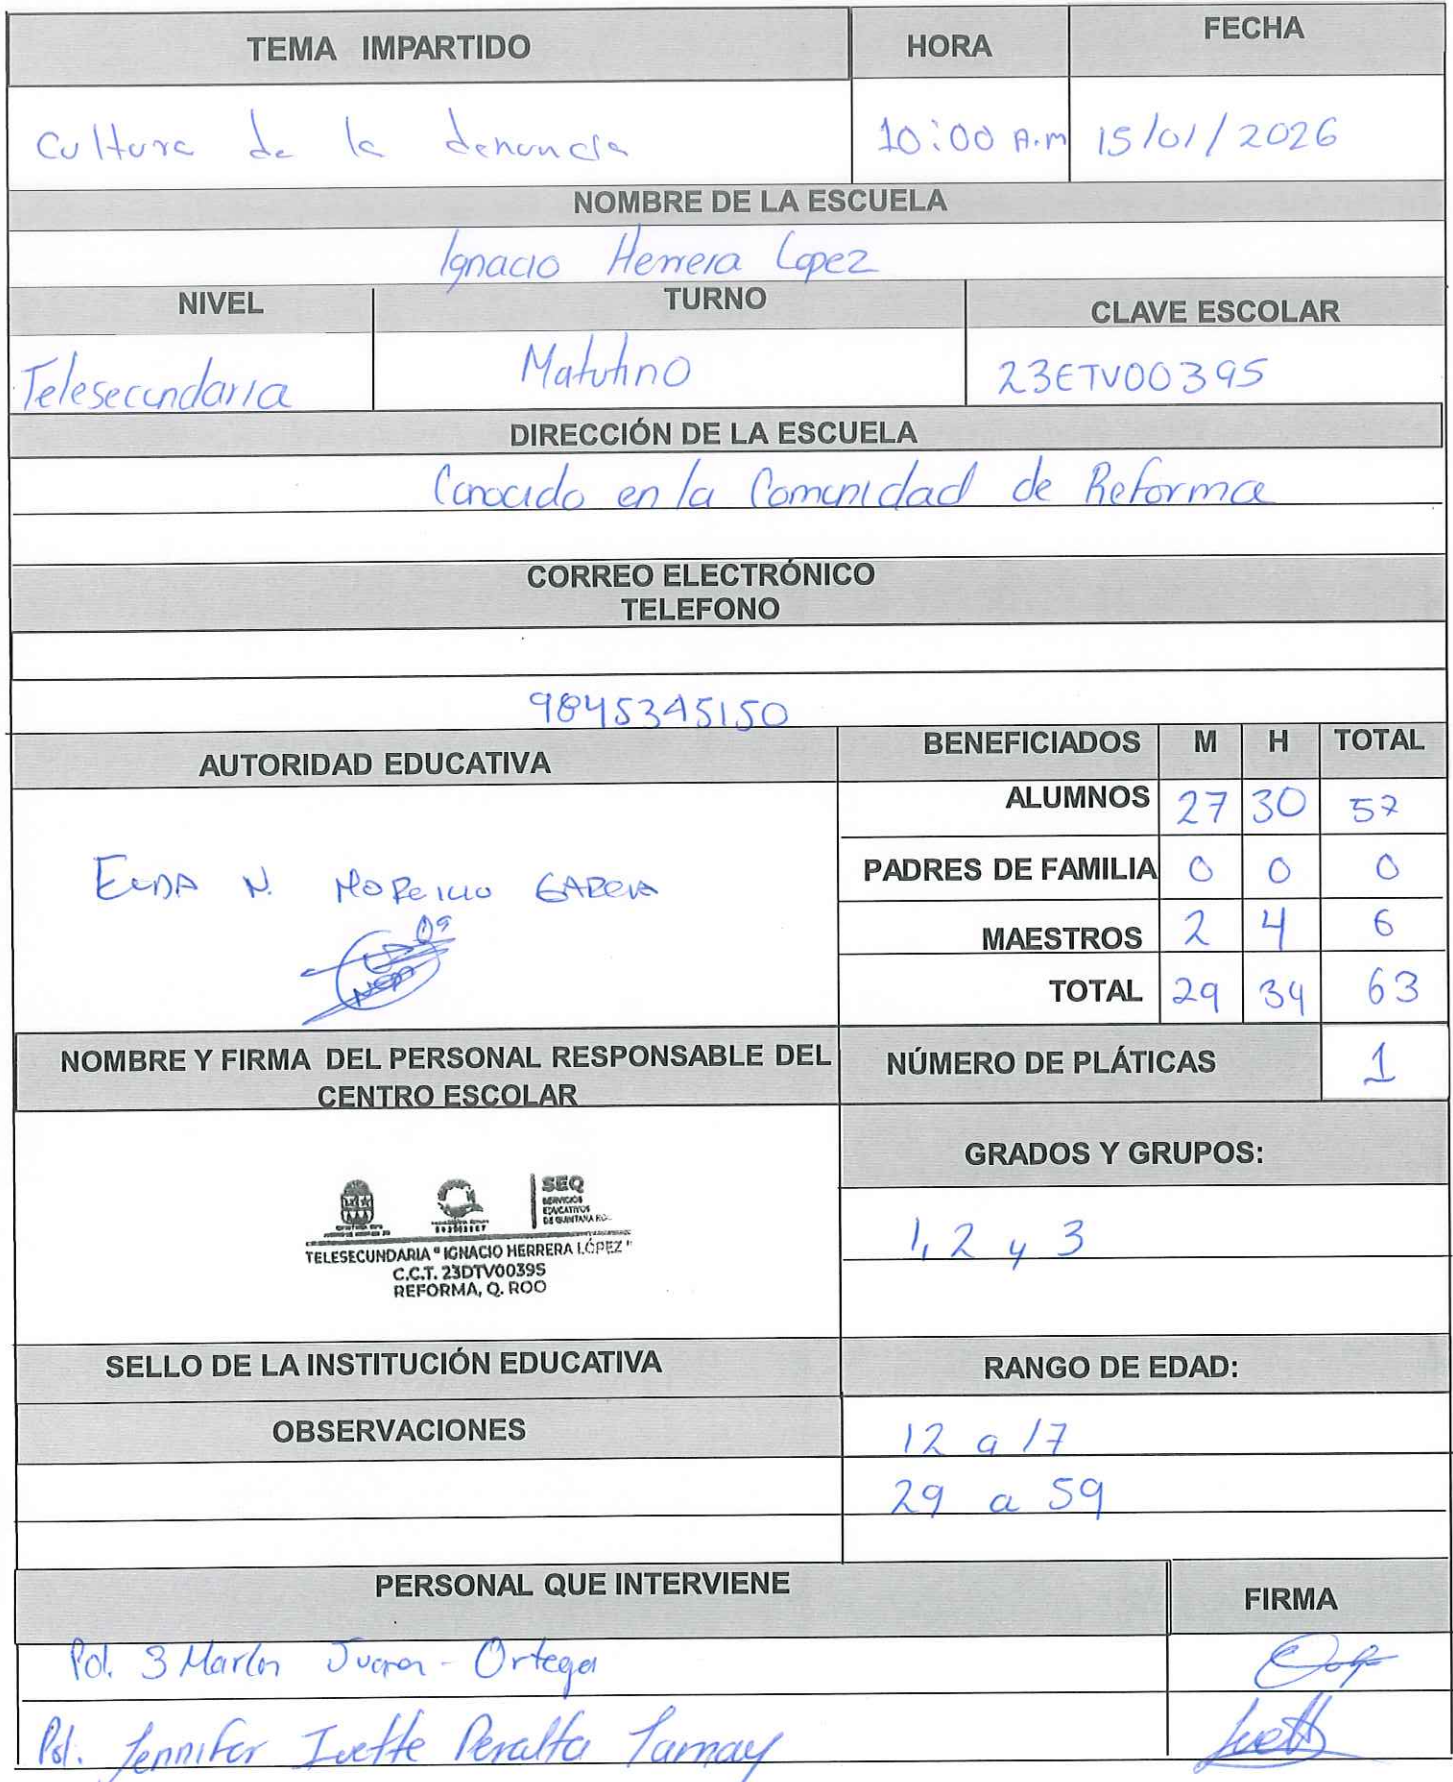 TEMA IMPARTIDO HORA FECHA
Cultura de la denuncia 10:00 A.m 15/01/2026
NOMBRE DE LA ESCUELA
Ignacio Herrera Lopez
NIVEL TURNO CLAVE ESCOLAR
Telesecundaria Matutino 23ETV0039S
DIRECCIÓN DE LA ESCUELA
Conocido en la Comunidad de Reforma
CORREO ELECTRÓNICO
TELEFONO
9845345150
AUTORIDAD EDUCATIVA BENEFICIADOS M H TOTAL
ALUMNOS 27 30 57
PADRES DE FAMILIA 0 0 0
N. GARCIA
MAESTROS 2 4 6
TOTAL 29 34 63
NOMBRE Y FIRMA DEL PERSONAL RESPONSABLE DEL
CENTRO ESCOLAR
NÚMERO DE PLÁTICAS 1
GRADOS Y GRUPOS:
SEQ
SERVICIOS
EDUCATIVOS
DE QUINTANA ROO
TELESECUNDARIA " IGNACIO HERRERA LÓPEZ "
C.C.T. 23DTV0039S
REFORMA, Q. ROO
1, 2 y 3
SELLO DE LA INSTITUCIÓN EDUCATIVA RANGO DE EDAD:
OBSERVACIONES 12 a 17
29 a 59
PERSONAL QUE INTERVIENE FIRMA
Pol. 3 Marlon Ortega
Pol. Jennifer Ivette Peralta Tamay